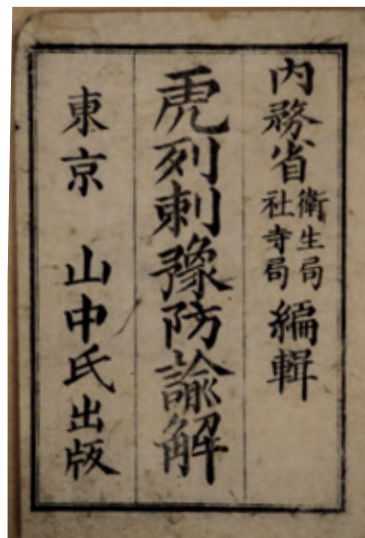 内務省衛生局社寺局編輯
虎列刺豫防諭解
東京 山中氏出版